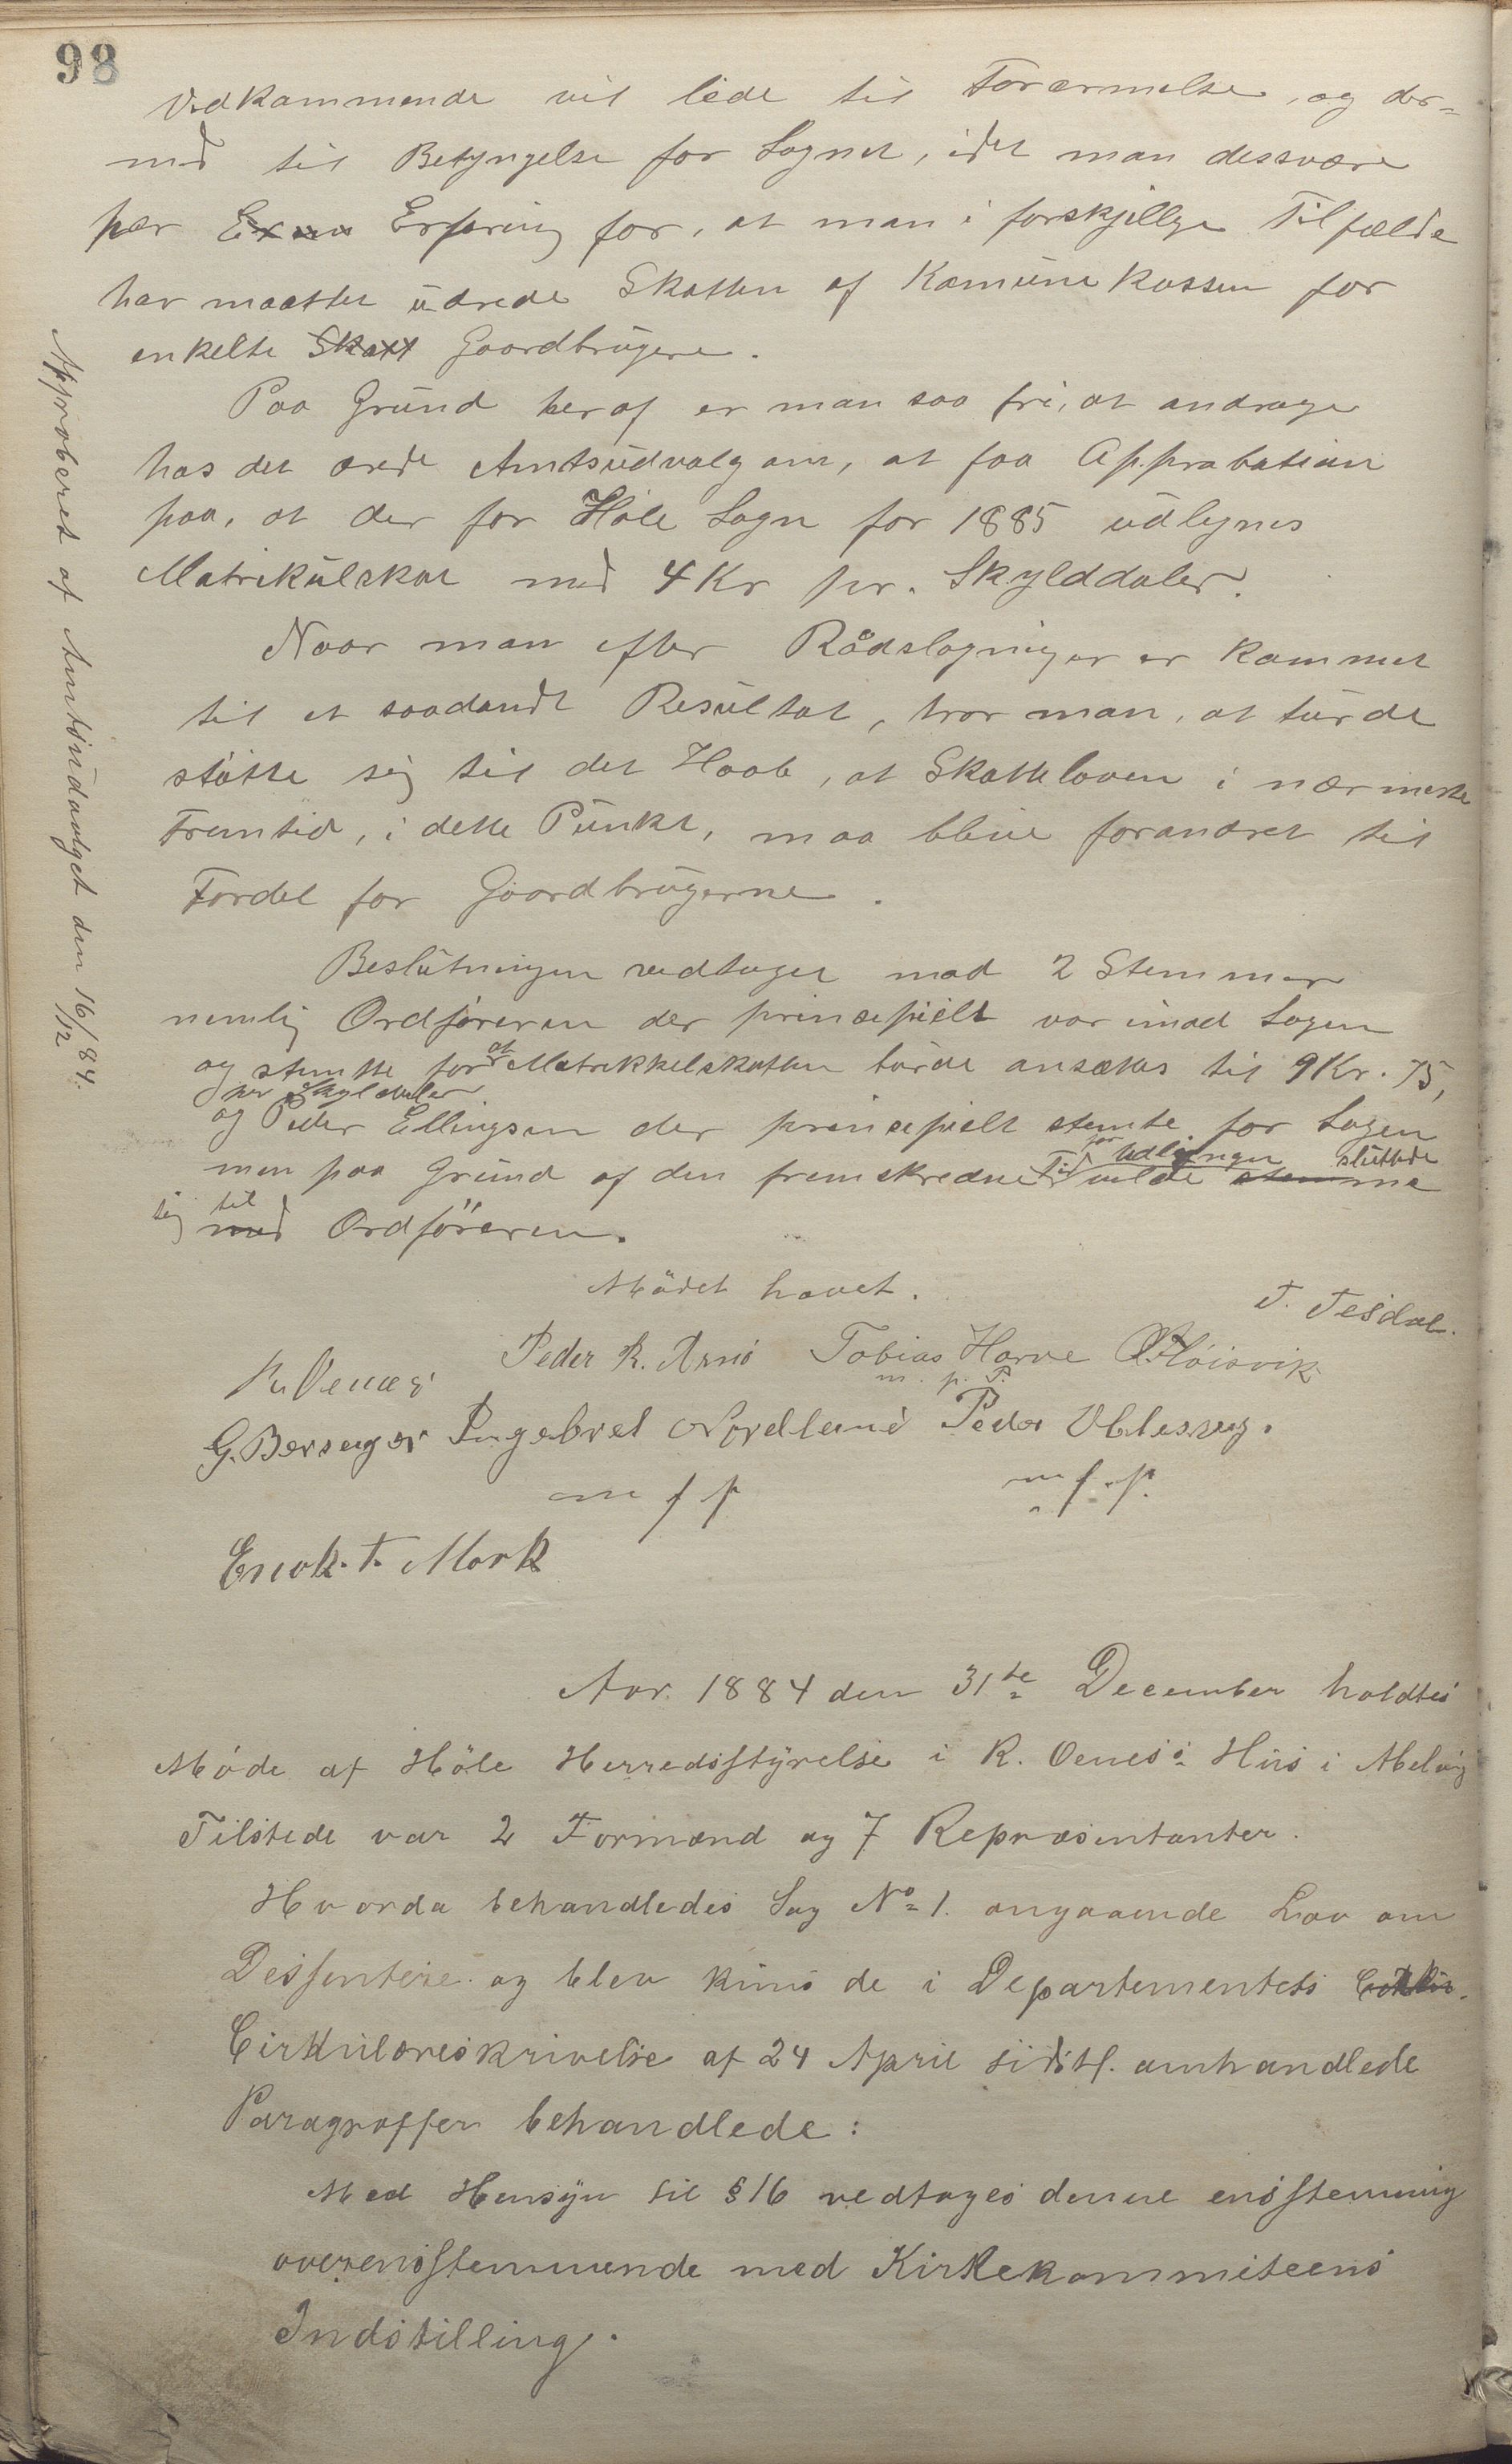 98
Vedkommende vil lede til Forarmelse, og der-
med til Betyngelse for Sognet, idet man dessværre
har Erfaring for, at man i forskjellige Tilfælde
har maattet udrede Skatten af Komunekassen for
enkelte Skatt Gaardbrugere.
Paa Grund heraf er man saa fri, at andrage
hos det ærede Amtsudvalg om, at faa Approbation
paa, at der for Höle Sogn for 1885 udlignes
Matrikulskat med 4 Kr pr. Skylddaler.
Naar man efter Rådslagninger er kommet
til et saadandt Resultat, tror man, at turde
støtte sig til det Haab, at Skatteloven i nærmeste
Fremtid, i dette Punkt, maa blive forandret til
Fordel for Gaardbrugerne.
Beslutningen vedtaget mod 2 Stemmer
nemlig Ordføreren der principielt var imod Sagen
og stemte for at Matrikkelskatten burde ansættes til 9 Kr. 75,
pr Skylddaler
og Peder Ellingsen der principielt stemte for Sagen
men paa Grund af den fremskredne Tid for Udligningen vilde stemme sluttede
sig med til Ordföreren.
Mödet hævet.
T. Tesdal.
Peder R. Arnö Tobias Harve O. Höisvik
m. p. P.
R. Oenæs
G. Berseger Ingebret Nordland Peder
m f p m f. p.
Enok. T. Mork
Aar. 1884 den 31te December holdtes
Möde af Höle Herredsstyrelse i R. Oenes's Hus i Melsvig
Tilstede var 2 Formænd og 7 Repræsentanter.
Hvorda behandledes Sag No 1. angaaende Lov om
Dissentere. og blev kuns de i Departementets
Cirkulæreskrivelse af 24 April sidstl. omhandlede
Paragraffer behandlede:
Med Hensyn til § 16 vedtages denne ensstemmig
overensstemmende med Kirkekommiteens
Indstilling.
Approberet af Amtsudvalget den 16/12 84.